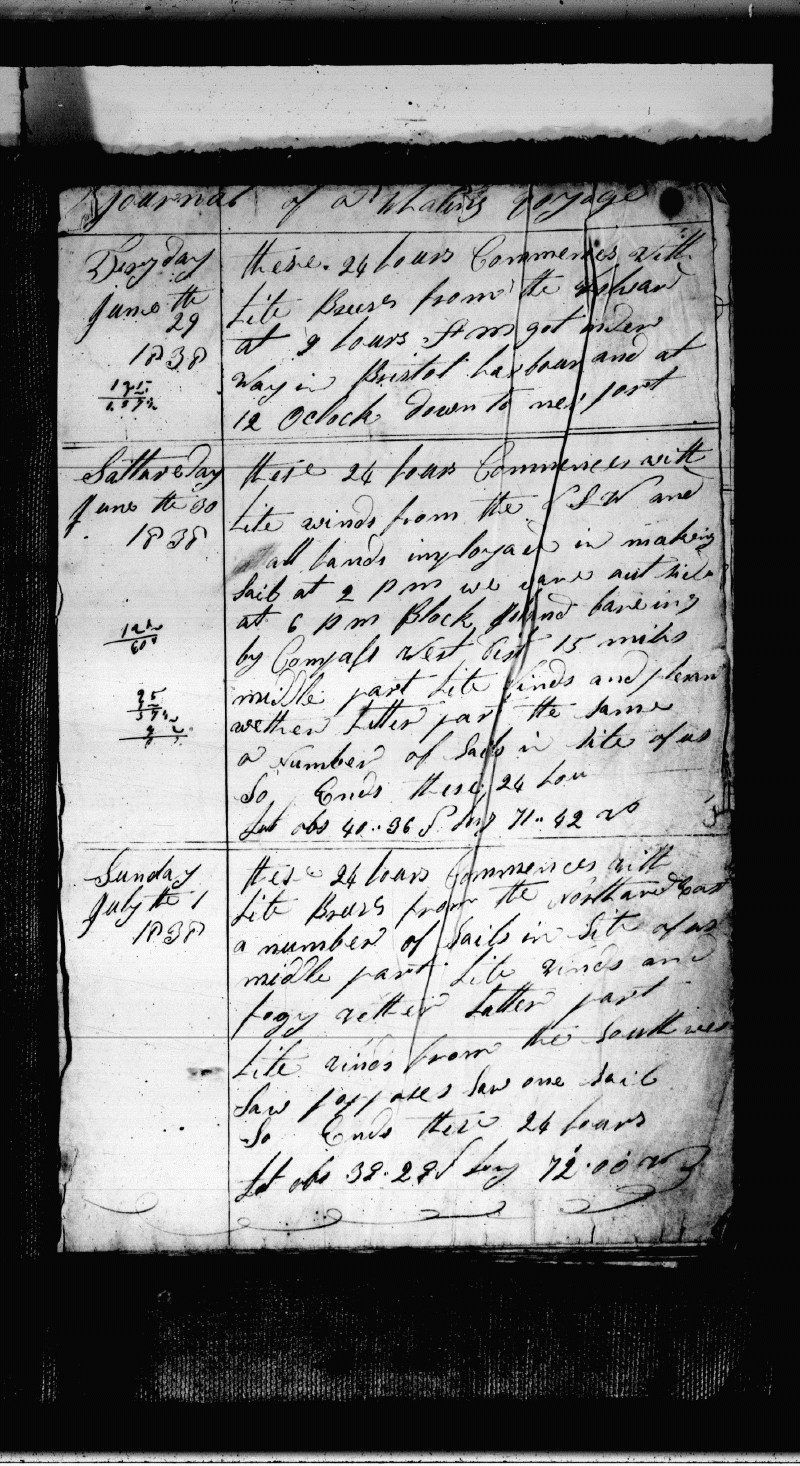 Journal of a Whaling voyage
Fryday
June the
29
1838
these 24 hours Commences with
Lite Breeses from the
at 9 hours A m got under
Way in Bristol harbour and at
12 Oclock down to neuport
Sattureday
June the 30
1838
these 24 hours Commences with
Lite winds from the S S W and
all hands imployaed in making
Sail at 2 P m we ware out side
at 6 P m Block Island bareing
by Compass West Dist 15 miles
middle part Lite Winds and
wether Latter part the Same
a Number of Sails in Site of us
So Ends these 24 hou
Lat obs 40..36 Long 71..42 W
Sunday
July the 1
1838
these 24 hours Commences with
Lite Breses from the Northard East
a number of Sails in Site of us
middle part Lite winds and
fogy wether Latter part
Lite winds from the South wes
Saw porposes Saw one Sail
So Ends these 24 hours
Lat obs 38.28 Long 72.00 W